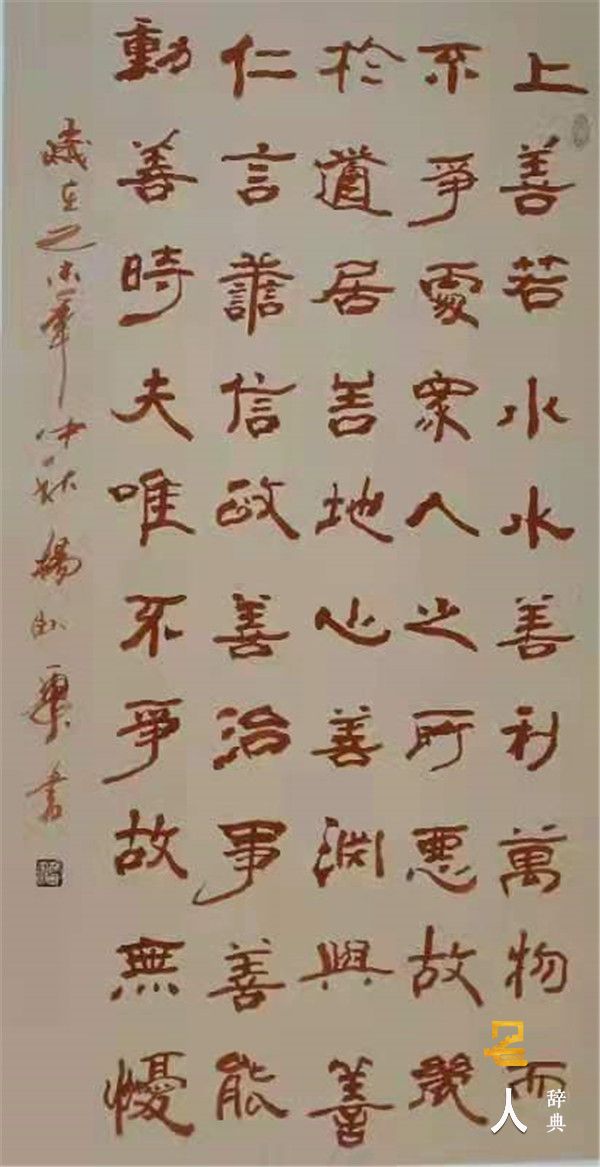 上善若水水善利萬物而
不爭處眾人之所惡故幾
於道居善地心善淵與善
仁言譱信政善治事善能
動善時夫唯不爭故無懮
歲在乙未年仲秋楊書
人辞典